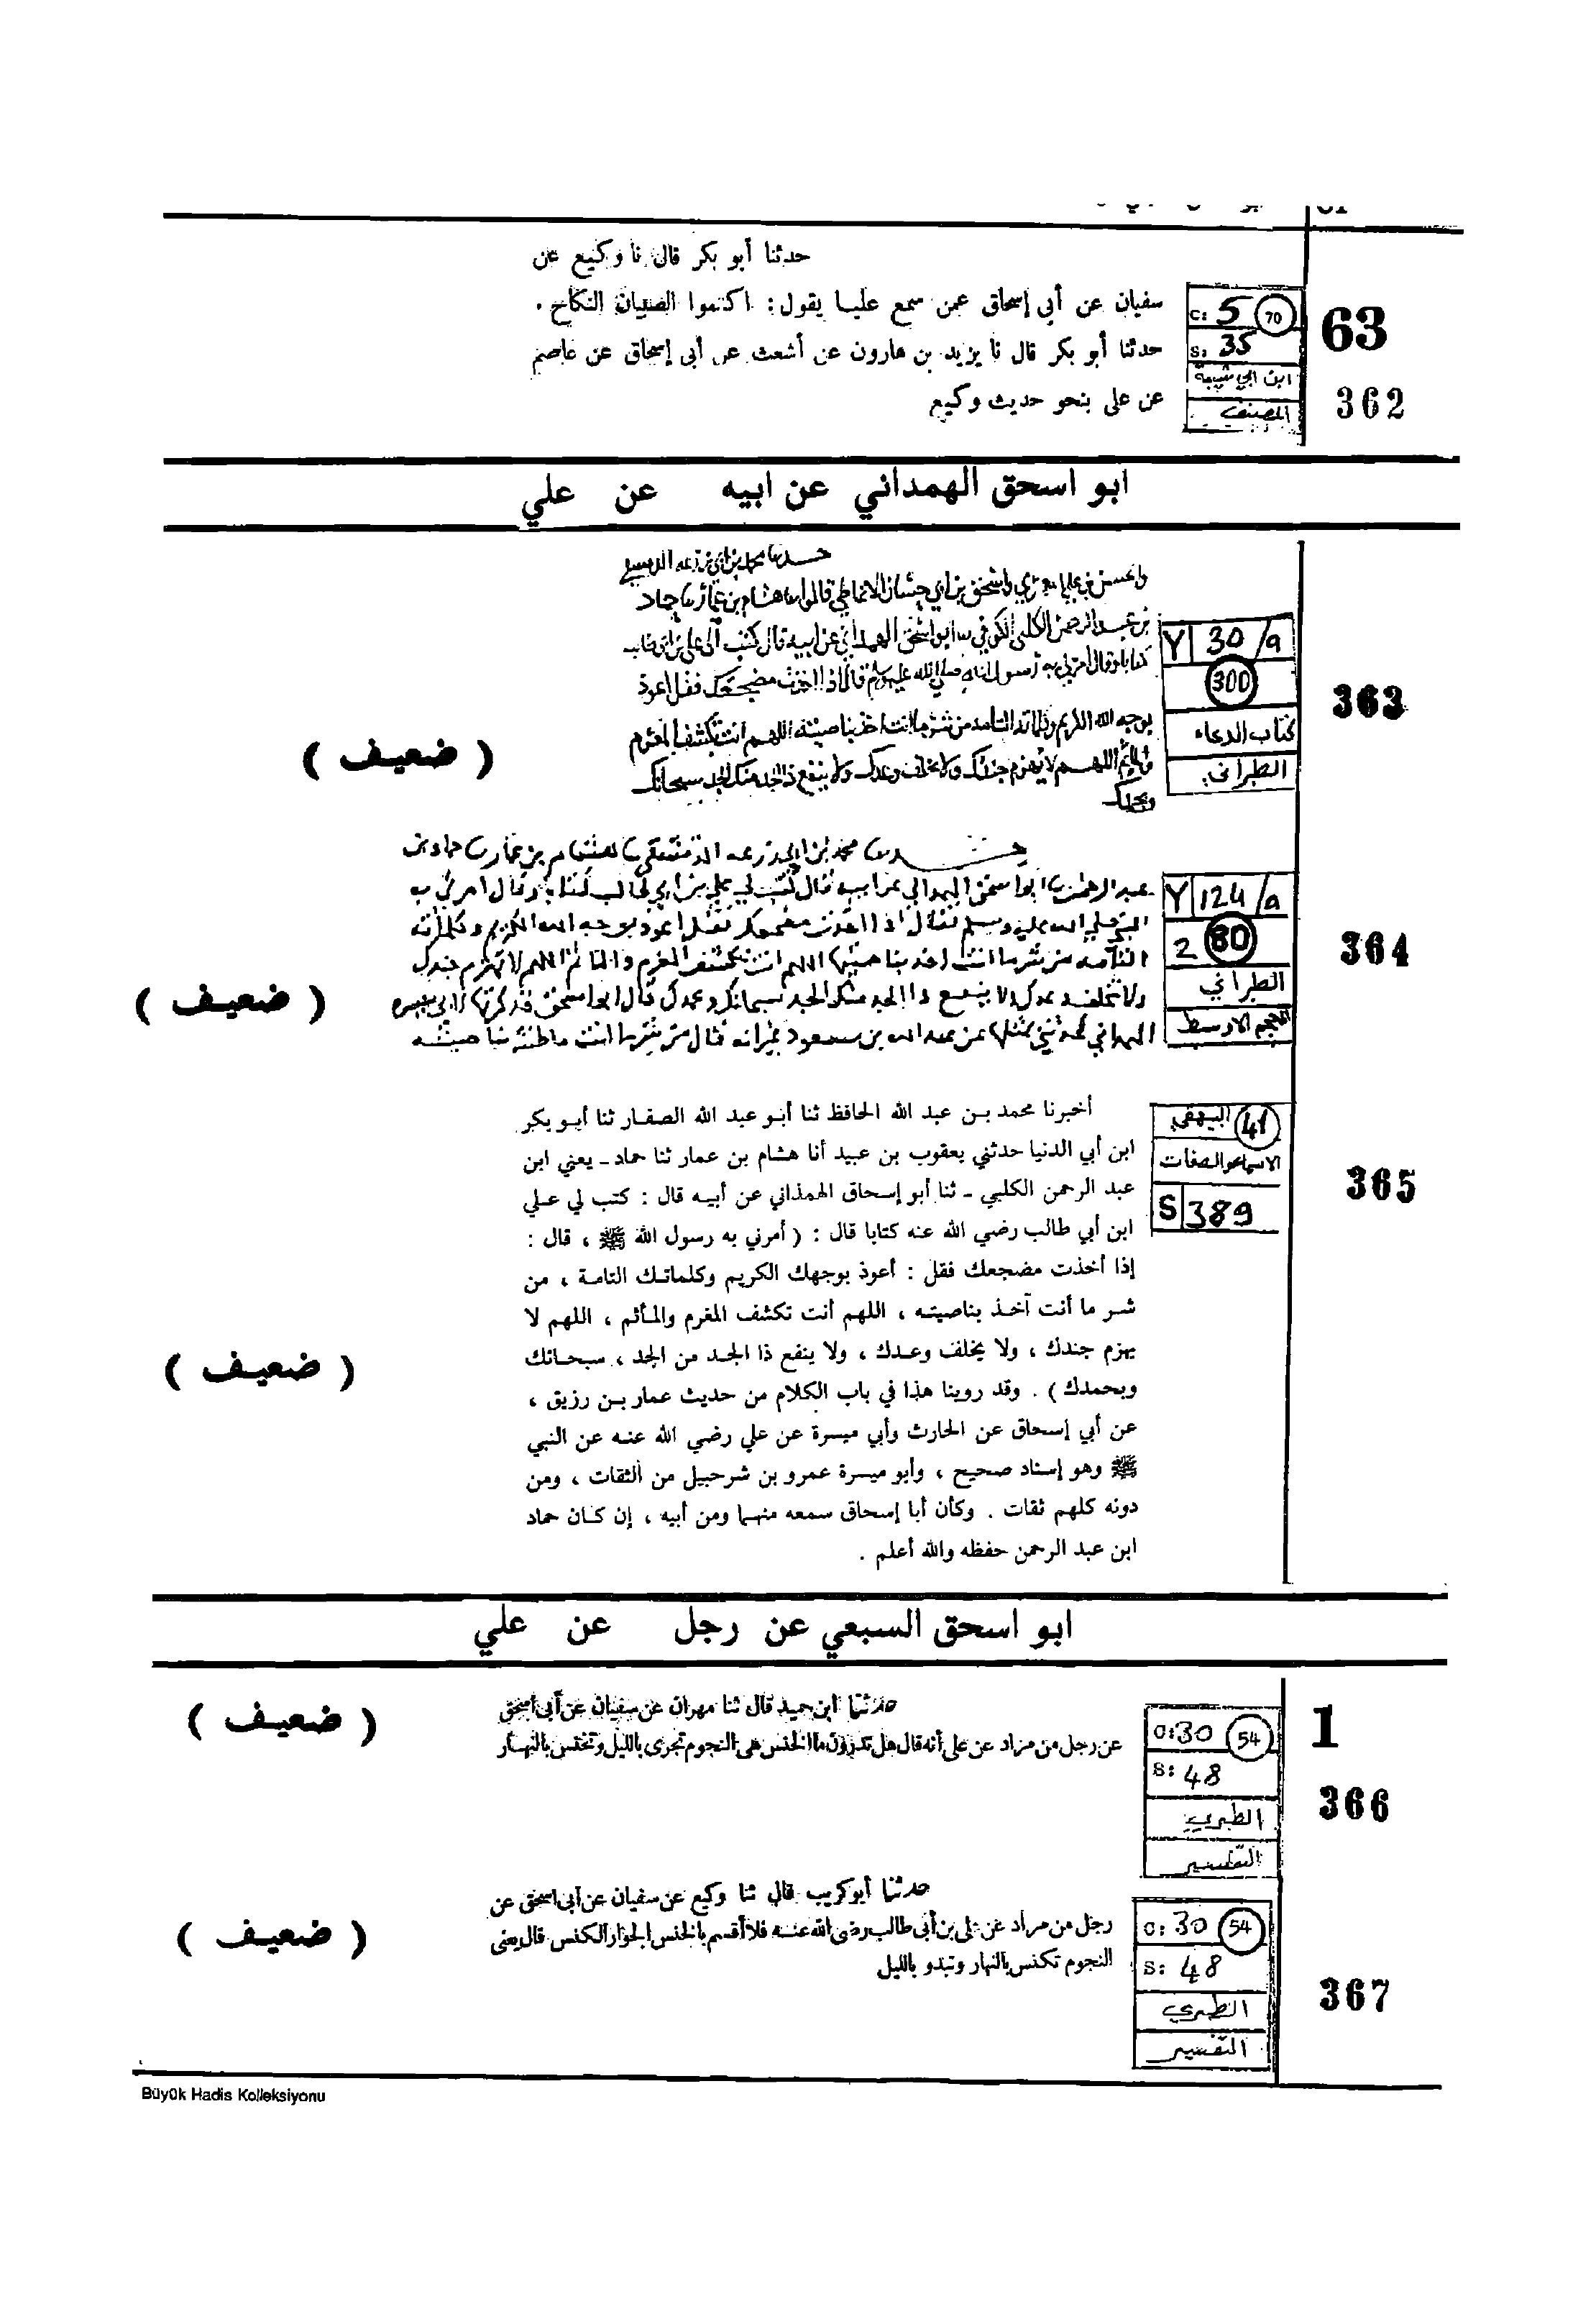 حدثنا أبو بكر قال نا وكيع عن
سفيان عن أبي إسحاق عمن سمع عليا يقول: اكتموا الصبيان النكاح.
حدثنا أبو بكر قال نا يزيد بن هارون عن أشعث عن أبي إسحاق عن عاصم
عن علي بنحو حديث وكيع
C: 5 70
S: 35
ابن ابي شيبة
المصنف
63
362
ابو اسحق الهمداني عن ابيه عن علي
واسحق بن ابي حسان الانماطي قالوا هشام بن عمار حماد
بن عبد الرحمن الكلبي الكوفي ابو اسحق الهمداني عن ابيه قال كتب الى علي بن ابي طالب
كتابا وقال امرني به رسول الله صلى الله عليه وسلم قال اذا اخذت مضجعك فقل اعوذ
بوجه الله الكريم وكلماته التامه من شر ما انت اخذ بناصيته اللهم انت تكشف المغرم
والمأثم اللهم لا يهزم جندك ولا يخلف وعدك ولا ينفع ذا الجد منك الجد سبحانك
وبحمدك
Y 30/a
300
كتاب الدعاء
الطبراني
363
( ضعيف )
محمد بن ابي زرعه الدمشقي هشام بن عمار حماد بن
عبد الرحمن ابو اسحق الهمداني عن ابيه قال كتب لي علي بن ابي طالب كتابا وقال امرني به
النبي صلى الله عليه وسلم فقال اذا اخذت مضجعك فقل اعوذ بوجه الله الكريم وكلماته
التامه من شر ما انت اخذ بناصيتها اللهم انت تكشف المغرم والماثم اللهم لا تهزم جندك
ولا تخلف وعدك ولا ينفع ذا الجد منك الجد سبحانك وبحمدك قال ابو اسحق فذكرتها لابي ميسره
الهمداني فحدثني بمثلها عن عبد الله بن مسعود قال من شر ما انت بناصيته
Y 124/a
2 80
الطبراني
المعجم الاوسط
364
( ضعيف )
أخبرنا محمد بن عبد الله الحافظ ثنا أبو عبد الله الصفار ثنا أبو بكر
ابن أبي الدنيا حدثني يعقوب بن عبيد أنا هشام بن عمار ثنا حماد ـ يعني ابن
عبد الرحمن الكلبي ـ ثنا أبو إسحاق الهمذاني عن أبيه قال : كتب لي علي
ابن أبي طالب رضي الله عنه كتابا قال : ( أمرني به رسول الله ﷺ ، قال :
إذا أخذت مضجعك فقل : أعوذ بوجهك الكريم وكلماتك التامة ، من
شر ما أنت آخذ بناصيته ، اللهم أنت تكشف المغرم والمأثم ، اللهم لا
يهزم جندك ، ولا يخلف وعدك ، ولا ينفع ذا الجد من الجد ، سبحانك
وبحمدك ) . وقد روينا هذا في باب الكلام من حديث عمار بن رزيق ،
عن أبي إسحاق عن الحارث وأبي ميسرة عن علي رضي الله عنه عن النبي
ﷺ وهو إسناد صحيح ، وأبو ميسرة عمرو بن شرحبيل من الثقات ، ومن
دونه كلهم ثقات . وكأن أبا إسحاق سمعه منهما ومن أبيه ، إن كان حماد
ابن عبد الرحمن حفظه والله أعلم .
البيهقي 41
الاسماء والصفات
S 389
365
( ضعيف )
ابو اسحق السبعي عن رجل عن علي
حدثنا ابن حميد قال ثنا مهران عن سفيان عن أبي اسحق
عن رجل من مراد عن علي أنه قال هل تدرون ما الخنس هي النجوم تجري بالليل وتخنس بالنهار
C: 30 54
S: 48
الطبري
التفسير
1
366
( ضعيف )
حدثنا أبو كريب قال ثنا وكيع عن سفيان عن أبي اسحق عن
رجل من مراد عن علي بن أبي طالب رضي الله عنه فلا أقسم بالخنس الجوار الكنس قال يعني
النجوم تكنس بالنهار وتبدو بالليل
C: 30 54
S: 48
الطبري
التفسير
367
( ضعيف )
Büyük Hadis Kolleksiyonu